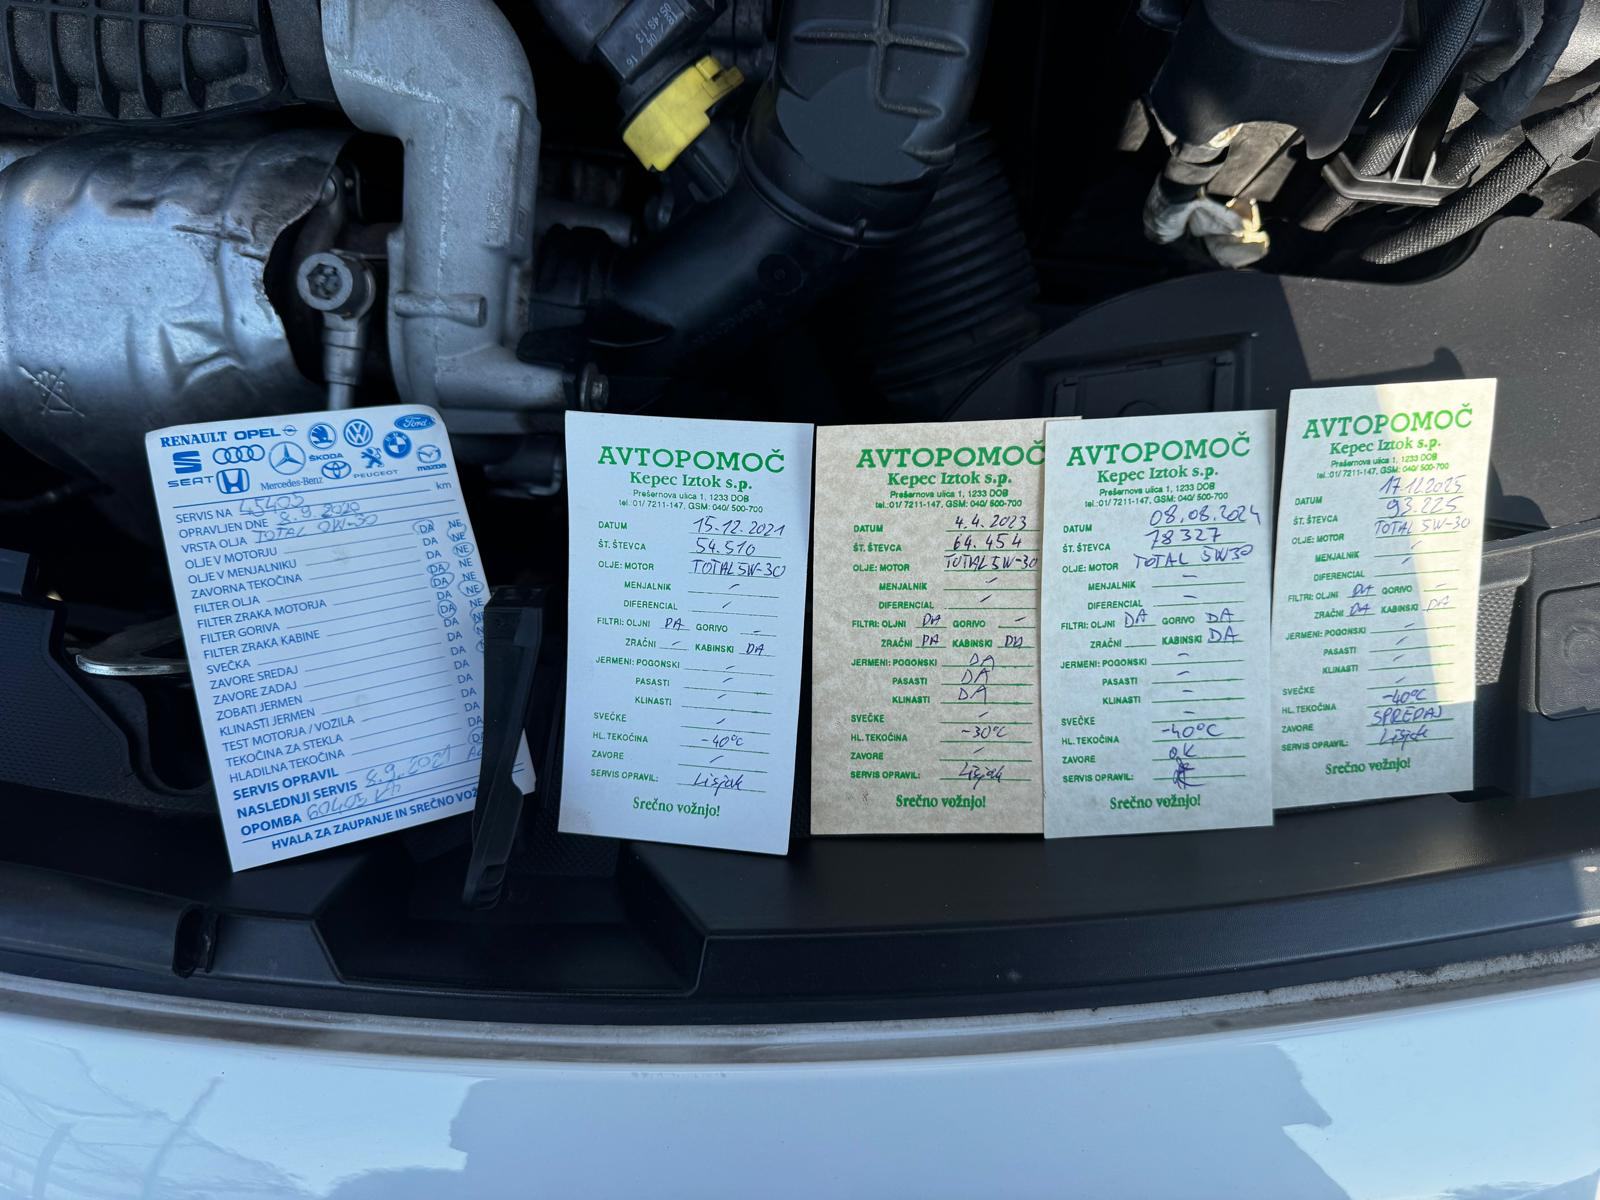 RENAULT OPEL
Ford
SEAT
ŠKODA
PEUGEOT
mazda
Mercedes-Benz
SERVIS NA 45405 km
OPRAVLJEN DNE 8.9.2020
VRSTA OLJA TOTAL 0W-30
OLJE V MOTORJU DA NE
OLJE V MENJALNIKU DA NE
ZAVORNA TEKOČINA DA NE
FILTER OLJA DA NE
FILTER ZRAKA MOTORJA DA NE
FILTER GORIVA DA NE
FILTER ZRAKA KABINE DA
SVEČKA DA
ZAVORE SREDAJ DA
ZAVORE ZADAJ DA
ZOBATI JERMEN DA
KLINASTI JERMEN DA
TEST MOTORJA / VOZILA DA
TEKOČINA ZA STEKLA DA
HLADILNA TEKOČINA
SERVIS OPRAVIL
NASLEDNJI SERVIS 8.9.2021
OPOMBA 60405 km
HVALA ZA ZAUPANJE IN SREČNO VOŽ
AVTOPOMOČ
Kepec Iztok s.p.
Prešernova ulica 1, 1233 DOB
tel.:01/ 7211-147, GSM: 040/ 500-700
DATUM 15.12.2021
ŠT. ŠTEVCA 54.510
OLJE: MOTOR TOTAL 5W-30
MENJALNIK –
DIFERENCIAL –
FILTRI: OLJNI DA GORIVO –
ZRAČNI – KABINSKI DA
JERMENI: POGONSKI –
PASASTI –
KLINASTI –
SVEČKE –
HL. TEKOČINA -40°C
ZAVORE –
SERVIS OPRAVIL: Lisjak
Srečno vožnjo!
AVTOPOMOČ
Kepec Iztok s.p.
Prešernova ulica 1, 1233 DOB
tel.:01/ 7211-147, GSM: 040/ 500-700
DATUM 4.4.2023
ŠT. ŠTEVCA 64.454
OLJE: MOTOR TOTAL 5W-30
MENJALNIK –
DIFERENCIAL –
FILTRI: OLJNI DA GORIVO –
ZRAČNI DA KABINSKI DA
JERMENI: POGONSKI DA
PASASTI DA
KLINASTI DA
SVEČKE –
HL. TEKOČINA -30°C
ZAVORE –
SERVIS OPRAVIL: Lisjak
Srečno vožnjo!
AVTOPOMOČ
Kepec Iztok s.p.
Prešernova ulica 1, 1233 DOB
tel.:01/ 7211-147, GSM: 040/ 500-700
DATUM 08.08.2024
ŠT. ŠTEVCA 78327
OLJE: MOTOR TOTAL 5W30
MENJALNIK –
DIFERENCIAL –
FILTRI: OLJNI DA GORIVO DA
ZRAČNI – KABINSKI DA
JERMENI: POGONSKI –
PASASTI –
KLINASTI –
SVEČKE –
HL. TEKOČINA -40°C
ZAVORE OK
SERVIS OPRAVIL:
Srečno vožnjo!
AVTOPOMOČ
Kepec Iztok s.p.
Prešernova ulica 1, 1233 DOB
tel.:01/ 7211-147, GSM: 040/ 500-700
DATUM 17.12.2025
ŠT. ŠTEVCA 93.225
OLJE: MOTOR TOTAL 5W-30
MENJALNIK –
DIFERENCIAL –
FILTRI: OLJNI DA GORIVO –
ZRAČNI DA KABINSKI DA
JERMENI: POGONSKI –
PASASTI –
KLINASTI –
SVEČKE –
HL. TEKOČINA -40°C
ZAVORE SPREDAJ
SERVIS OPRAVIL: Lisjak
Srečno vožnjo!